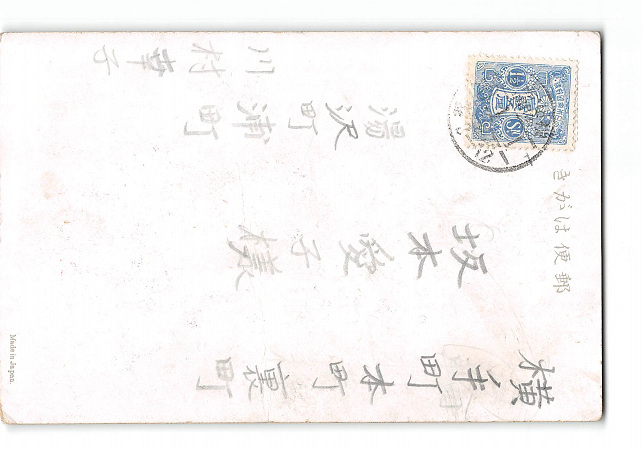 郵便はがき
横手町本町裏町
坂本愛子様
湯沢町浦町
川村
Made in Japan.